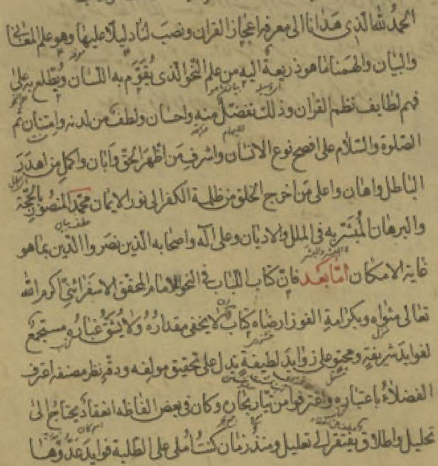 الحمد لله الذى هدانا الى معرفة اعجاز القران ونصب لنا دليلا عليها وهو علم المعانى
والبيان والهمنا ما هو ذريعة اليه من علم النحو الذى يقوّم به اللسان ويطلع به على
فهم لطايف نظم القران وذلك بفضل منه واحسان ولطف من لدنه وامتنان ثم
الصلوة والسلام على افصح نوع الانسان واشرف من اظهر الحق وابان واكمل من اهدر
الباطل واهان واعلى من اخرج الخلق من ظلمة الكفر الى نور الايمان محمد المنصور بالحجة
والبرهان المبشر به فى الملل والاديان وعلى آله واصحابه الذين نصروا الدين بما هو
غاية الامكان اما بعد فان كتاب اللباب فى النحو للامام المحقق الاسفراينى اكرم الله
تعالى مثواه وبكرامة الفوز ارضاه كتاب لا يخفى مقداره ولا يشق غباره مستجمع
لفوايد شريفة ومحتو على زوايد لطيفة يدل على تحقيق مولفه ودقة نظر مصنفه اعترف
الفضلاء باعتباره واغترفوا من تيار بحاره وكان فى بعض الفاظه انغلاق يحتاج الى
تحليل واطلاق يفتقر الى تعليل ومنذ زمان كنت املى على الطلبة فوايد